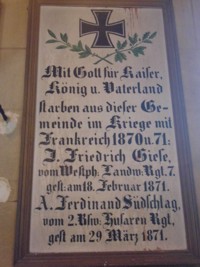 Mit Gott für Kaiser,
König u. Vaterland
starben aus dieser Ge-
meinde im Kriege mit
Frankreich 1870 u. 71:
J. Friedrich Giese,
vom Westph. Landw. Rgt. 7.
gest: am 18. Februar 1871.
A. Ferdinand Südschlag,
vom 2. Bsw: Husaren Rgt,
gest am 29 März 1871.